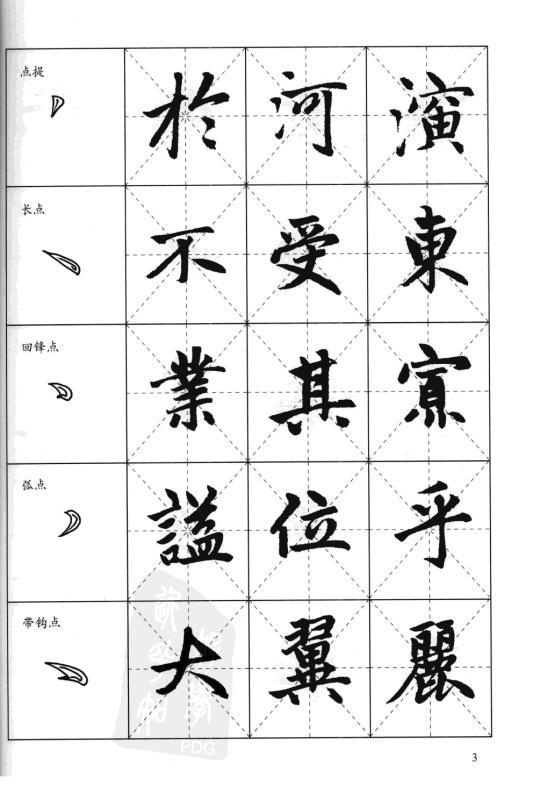 点提
於河演
长点
不受東
回锋点
業其賔
弧点
謚位乎
带钩点
大翼麗
PDG
3